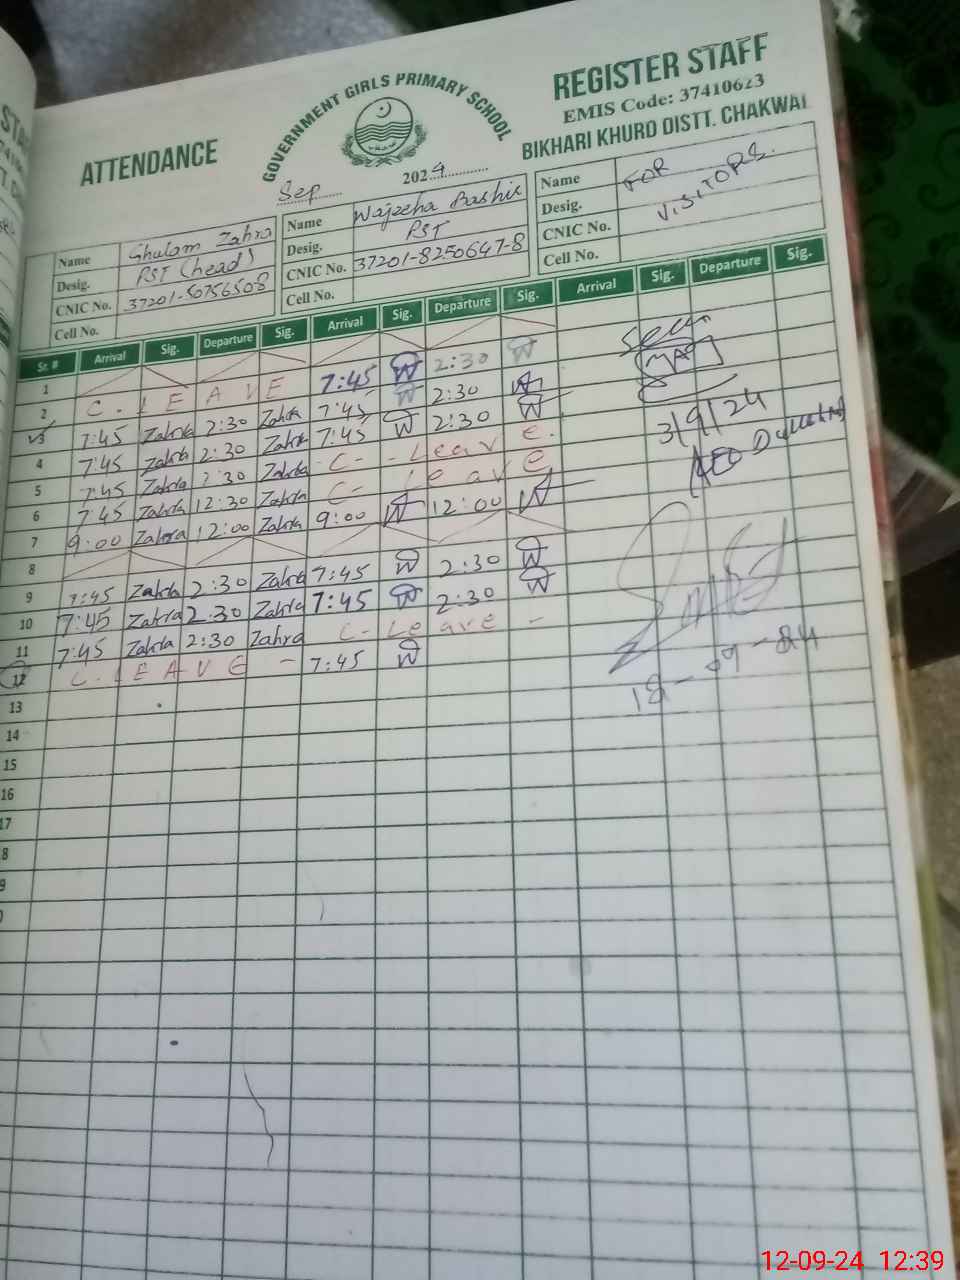 ATTENDANCE
GOVERNMENT GIRLS PRIMARY SCHOOL
REGISTER STAFF
EMIS Code: 37410623
BIKHARI KHURD DISTT. CHAKWAL
Sep 2024
Name Ghulam Zahra Name Wajeeha Bashir Name FOR
Desig. PST (head) Desig. PST Desig. VISITORS.
CNIC No. 37201-5075650-8 CNIC No. 37201-8250647-8 CNIC No.
Cell No. Cell No. Cell No.
Sr. # Arrival Sig. Departure Sig. Arrival Sig. Departure Sig. Arrival Sig. Departure Sig.
1
2 C. LEAVE 7:45 W 2:30 W
3 7:45 Zahra 2:30 Zahra 7:45 W 2:30 W
4 7:45 Zahra 2:30 Zahra 7:45 W 2:30 W
5 7:45 Zahra 2:30 Zahra C-Leave.
6 7:45 Zahra 12:30 Zahra C-Leave
7 9:00 Zahra 12:00 Zahra 9:00 W 12:00 W
3/9/24
AEO
8
9 7:45 Zahra 2:30 Zahra 7:45 W 2:30 W
10 7:45 Zahra 2:30 Zahra 7:45 W 2:30 W
11 7:45 Zahra 2:30 Zahra C-Leave -
12 C. LEAVE - 7:45 W
13
14
15
16
17
8
9
12-09-24 12:39